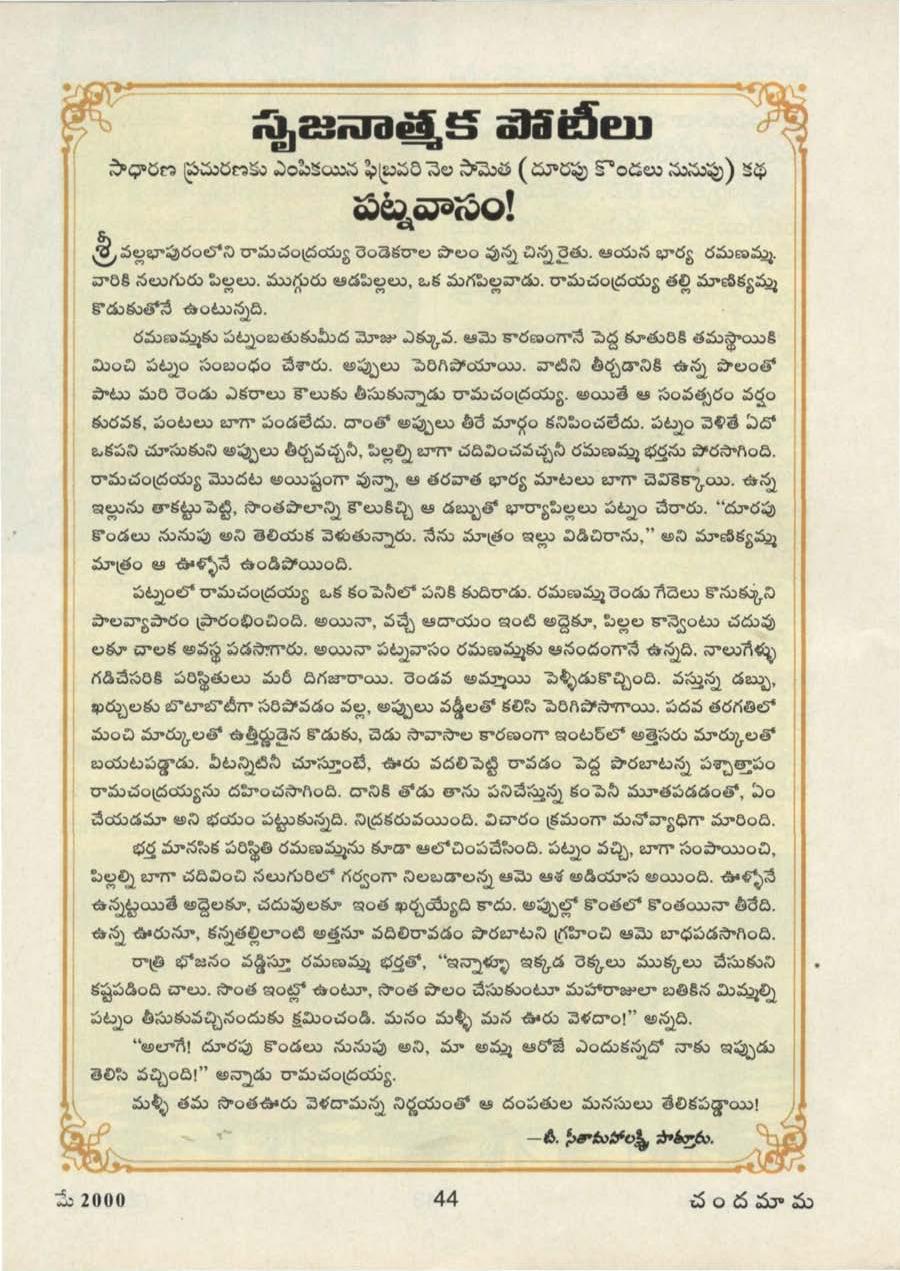 సృజనాత్మక పోటీలు
సాధారణ ప్రచురణకు ఎంపికయిన ఫిబ్రవరి నెల సామెత (దూరపు కొండలు నునుపు) కథ
పట్నవాసం!
శ్రీవల్లభాపురంలోని రామచంద్రయ్య రెండెకరాల పొలం వున్న చిన్న రైతు. ఆయన భార్య రమణమ్మ.
వారికి నలుగురు పిల్లలు. ముగ్గురు ఆడపిల్లలు, ఒక మగపిల్లవాడు. రామచంద్రయ్య తల్లి మాణిక్యమ్మ
కొడుకుతోనే ఉంటున్నది.
రమణమ్మకు పట్నంబతుకుమీద మోజు ఎక్కువ. ఆమె కారణంగానే పెద్ద కూతురికి తమస్థాయికి
మించి పట్నం సంబంధం చేశారు. అప్పులు పెరిగిపోయాయి. వాటిని తీర్చడానికి ఉన్న పొలంతో
పాటు మరి రెండు ఎకరాలు కౌలుకు తీసుకున్నాడు రామచంద్రయ్య. అయితే ఆ సంవత్సరం వర్షం
కురవక, పంటలు బాగా పండలేదు. దాంతో అప్పులు తీరే మార్గం కనిపించలేదు. పట్నం వెళితే ఏదో
ఒకపని చూసుకుని అప్పులు తీర్చవచ్చనీ, పిల్లల్ని బాగా చదివించవచ్చనీ రమణమ్మ భర్తను పోరసాగింది.
రామచంద్రయ్య మొదట అయిష్టంగా వున్నా, ఆ తరవాత భార్య మాటలు బాగా చెవికెక్కాయి. ఉన్న
ఇల్లును తాకట్టుపెట్టి, సొంతపొలాన్ని కౌలుకిచ్చి ఆ డబ్బుతో భార్యాపిల్లలు పట్నం చేరారు. “దూరపు
కొండలు నునుపు అని తెలియక వెళుతున్నారు. నేను మాత్రం ఇల్లు విడిచిరాను,” అని మాణిక్యమ్మ
మాత్రం ఆ ఊళ్ళోనే ఉండిపోయింది.
పట్నంలో రామచంద్రయ్య ఒక కంపెనీలో పనికి కుదిరాడు. రమణమ్మ రెండు గేదెలు కొనుక్కుని
పాలవ్యాపారం ప్రారంభించింది. అయినా, వచ్చే ఆదాయం ఇంటి అద్దెకూ, పిల్లల కాన్వెంటు చదువు
లకూ చాలక అవస్థ పడసాగారు. అయినా పట్నవాసం రమణమ్మకు ఆనందంగానే ఉన్నది. నాలుగేళ్ళు
గడిచేసరికి పరిస్థితులు మరీ దిగజారాయి. రెండవ అమ్మాయి పెళ్ళీడుకొచ్చింది. వస్తున్న డబ్బు,
ఖర్చులకు బొటాబొటీగా సరిపోవడం వల్ల, అప్పులు వడ్డీలతో కలిసి పెరిగిపోసాగాయి. పదవ తరగతిలో
మంచి మార్కులతో ఉత్తీర్ణుడైన కొడుకు, చెడు సావాసాల కారణంగా ఇంటర్‌లో అత్తెసరు మార్కులతో
బయటపడ్డాడు. వీటన్నిటినీ చూస్తూంటే, ఊరు వదలిపెట్టి రావడం పెద్ద పొరబాటన్న పశ్చాత్తాపం
రామచంద్రయ్యను దహించసాగింది. దానికి తోడు తాను పనిచేస్తున్న కంపెనీ మూతపడడంతో, ఏం
చేయడమా అని భయం పట్టుకున్నది. నిద్రకరువయింది. విచారం క్రమంగా మనోవ్యాధిగా మారింది.
భర్త మానసిక పరిస్థితి రమణమ్మను కూడా ఆలోచింపచేసింది. పట్నం వచ్చి, బాగా సంపాయించి,
పిల్లల్ని బాగా చదివించి నలుగురిలో గర్వంగా నిలబడాలన్న ఆమె ఆశ అడియాస అయింది. ఊళ్ళోనే
ఉన్నట్టయితే అద్దెలకూ, చదువులకూ ఇంత ఖర్చయ్యేది కాదు. అప్పుల్లో కొంతలో కొంతయినా తీరేది.
ఉన్న ఊరునూ, కన్నతల్లిలాంటి అత్తనూ వదిలిరావడం పొరబాటని గ్రహించి ఆమె బాధపడసాగింది.
రాత్రి భోజనం వడ్డిస్తూ రమణమ్మ భర్తతో, “ఇన్నాళ్ళూ ఇక్కడ రెక్కలు ముక్కలు చేసుకుని
కష్టపడింది చాలు. సొంత ఇంట్లో ఉంటూ, సొంత పొలం చేసుకుంటూ మహారాజులా బతికిన మిమ్మల్ని
పట్నం తీసుకువచ్చినందుకు క్షమించండి. మనం మళ్ళీ మన ఊరు వెళదాం!” అన్నది.
“అలాగే! దూరపు కొండలు నునుపు అని, మా అమ్మ ఆరోజే ఎందుకన్నదో నాకు ఇప్పుడు
తెలిసి వచ్చింది!” అన్నాడు రామచంద్రయ్య.
మళ్ళీ తమ సొంతఊరు వెళదామన్న నిర్ణయంతో ఆ దంపతుల మనసులు తేలికపడ్డాయి!
—టి. సీతామహాలక్ష్మి, సాత్తూరు.
మే 2000
44
చందమామ